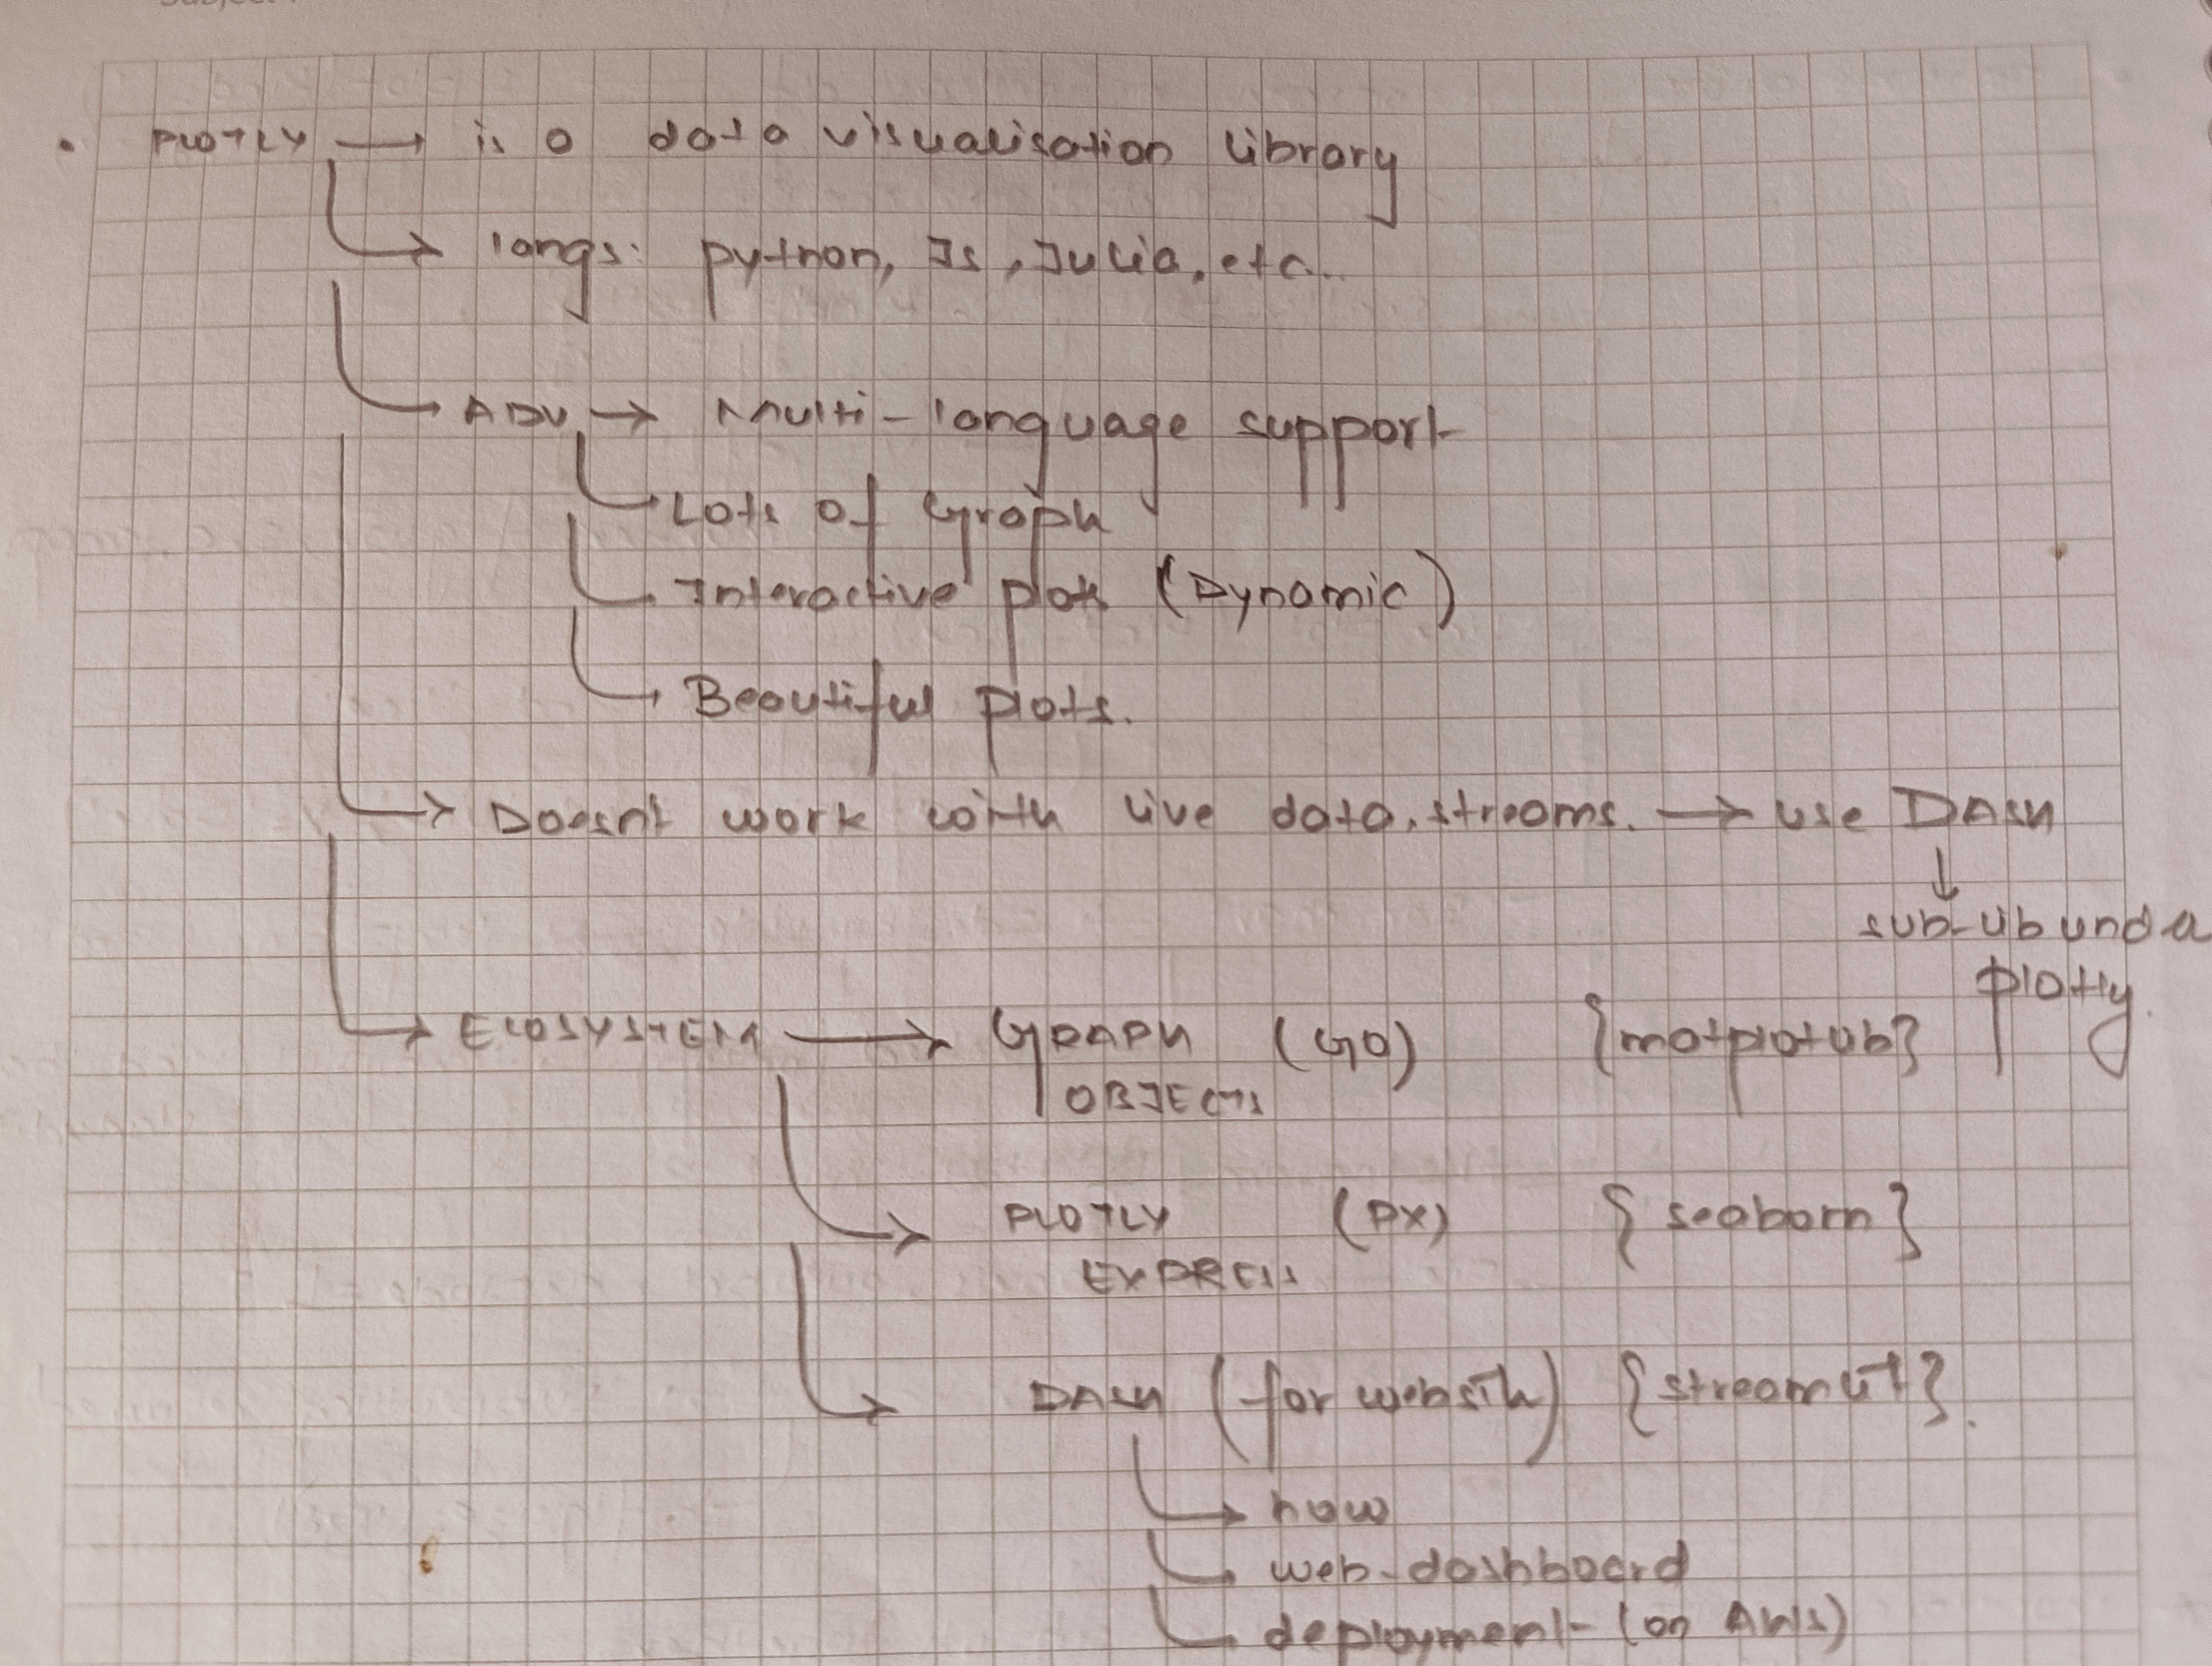 • PLOTLY → is a data visualisation library
→ langs: python, Js, Julia, etc..
→ ADV → Multi-language support
Lots of Graph
Interactive plots (Dynamic)
→ Beautiful plots.
→ Doesn't work with live data streams. → use DASH
↓
sub-lib und a
plotly.
→ ECOSYSTEM → GRAPH (GO) {matplotlib}
OBJECTS
→ PLOTLY (PX) {seaborn}
EXPRESS
→ DASH (for website) {streamlit}.
→ how
web-dashboard
deployment (on AWS)